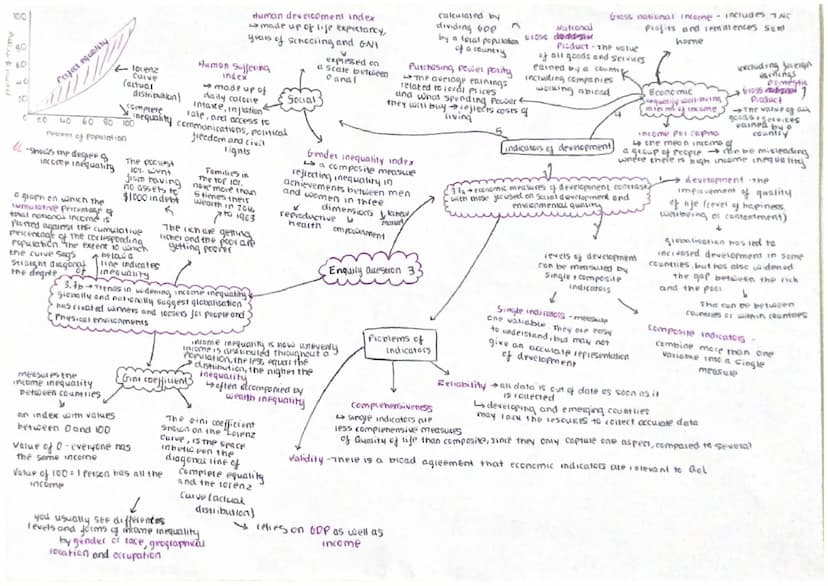 100
80
60
40
20
0
20 40 60 80 100
percent of population
Perfect equality
Lorenz
curve
(actual
distribution)
complete
inequality
Human development index
↳ made up of life expectancy,
years of schooling and GNI
↳ expressed on
a scale between
0 and 1
Human Suffering
index
↳ made up of
daily calorie
intake, inflation
rate, and access to
communications, political
freedom and civil
rights
Social
Gender inequality index
↳ a composite measure
reflecting inequality in
achievements between men
and women in three
dimensions
reproductive
health
empowerment
labour
market
calculated by
dividing GDP
by a total population
of a country
Purchasing power parity
↳ The average earnings
related to local prices
and what spending power
they will buy → reflects costs of
living
National
Gross domestic
Product - the value
of all goods and services
earned by a country
including companies
working abroad
Gross national income - includes TNC
profits and remittences sent
home
Economic
excluding foreign
earnings
Domestic
Gross
Product
↳ The value of all
goods + services
earned by a
country
income per capita
↳ the mean income of
a group of people → can be misleading
where there is high income inequality
4
5
indicators of development
- shows the degree of
income inequality
a graph on which the
cumulative percentage of
total national income is
plotted against the cumulative
percentage of the corresponding
population. The extent to which
the curve sags below a
straight diagonal line indicates
the degree of inequality
The poorest
10% went
from having
no assets to
$1000 in debt
Families in
the top 10%
have more than
5 times their
wealth in 2016
to 1963
The rich are getting
richer and the poor are
getting poorer
Enquiry question 3
3.7b → Trends in widening income inequality
globally and nationally suggest globalisation
has created winners and losers for people and
physical environments
3.7a → economic measures of development contrast
with those focused on social development and
environmental quality
development - the
improvement of quality
of life (level of hapiness,
wellbeing, or contentement)
globalisation has led to
increased development in some
countries, but has also widened
the gap between the rich
and the poor
This can be between
countries or within countries
levels of development
can be measured by
single + composite
indicators
Single indicators - measure
one variable. They are easy
to understand, but may not
give an accurate representation
of development
Composite indicators -
combine more than one
variable into a single
measure
Problems of
indicators
Reliability → all data is out of date as soon as it
is collected
↳ developing and emerging countries
may lack the resources to collect accurate data
Comprehensiveness
↳ single indicators are
less comprehensive measures
of quality of life than composite, since they only capture one aspect, compared to several
Validity - There is a broad agreement that economic indicators are relevant to QoL
Gini coefficient
income inequality is how unevenly
income is distributed throughout a
population, the less equal the
distribution, the higher the
inequality
↳ often accompanied by
wealth inequality
measures the
income inequality
between countries
an index with values
between 0 and 100
Value of 0 - everyone has
the same income
Value of 100 = 1 person has all the
income
The Gini coefficient
shown on the Lorenz
Curve, is the space
inbetween the
diagonal line of
complete equality
and the Lorenz
curve (actual
distribution)
↳ relies on GDP as well as
income
you usually see differences
levels and forms of income inequality
by gender or race, geographical
location and occupation